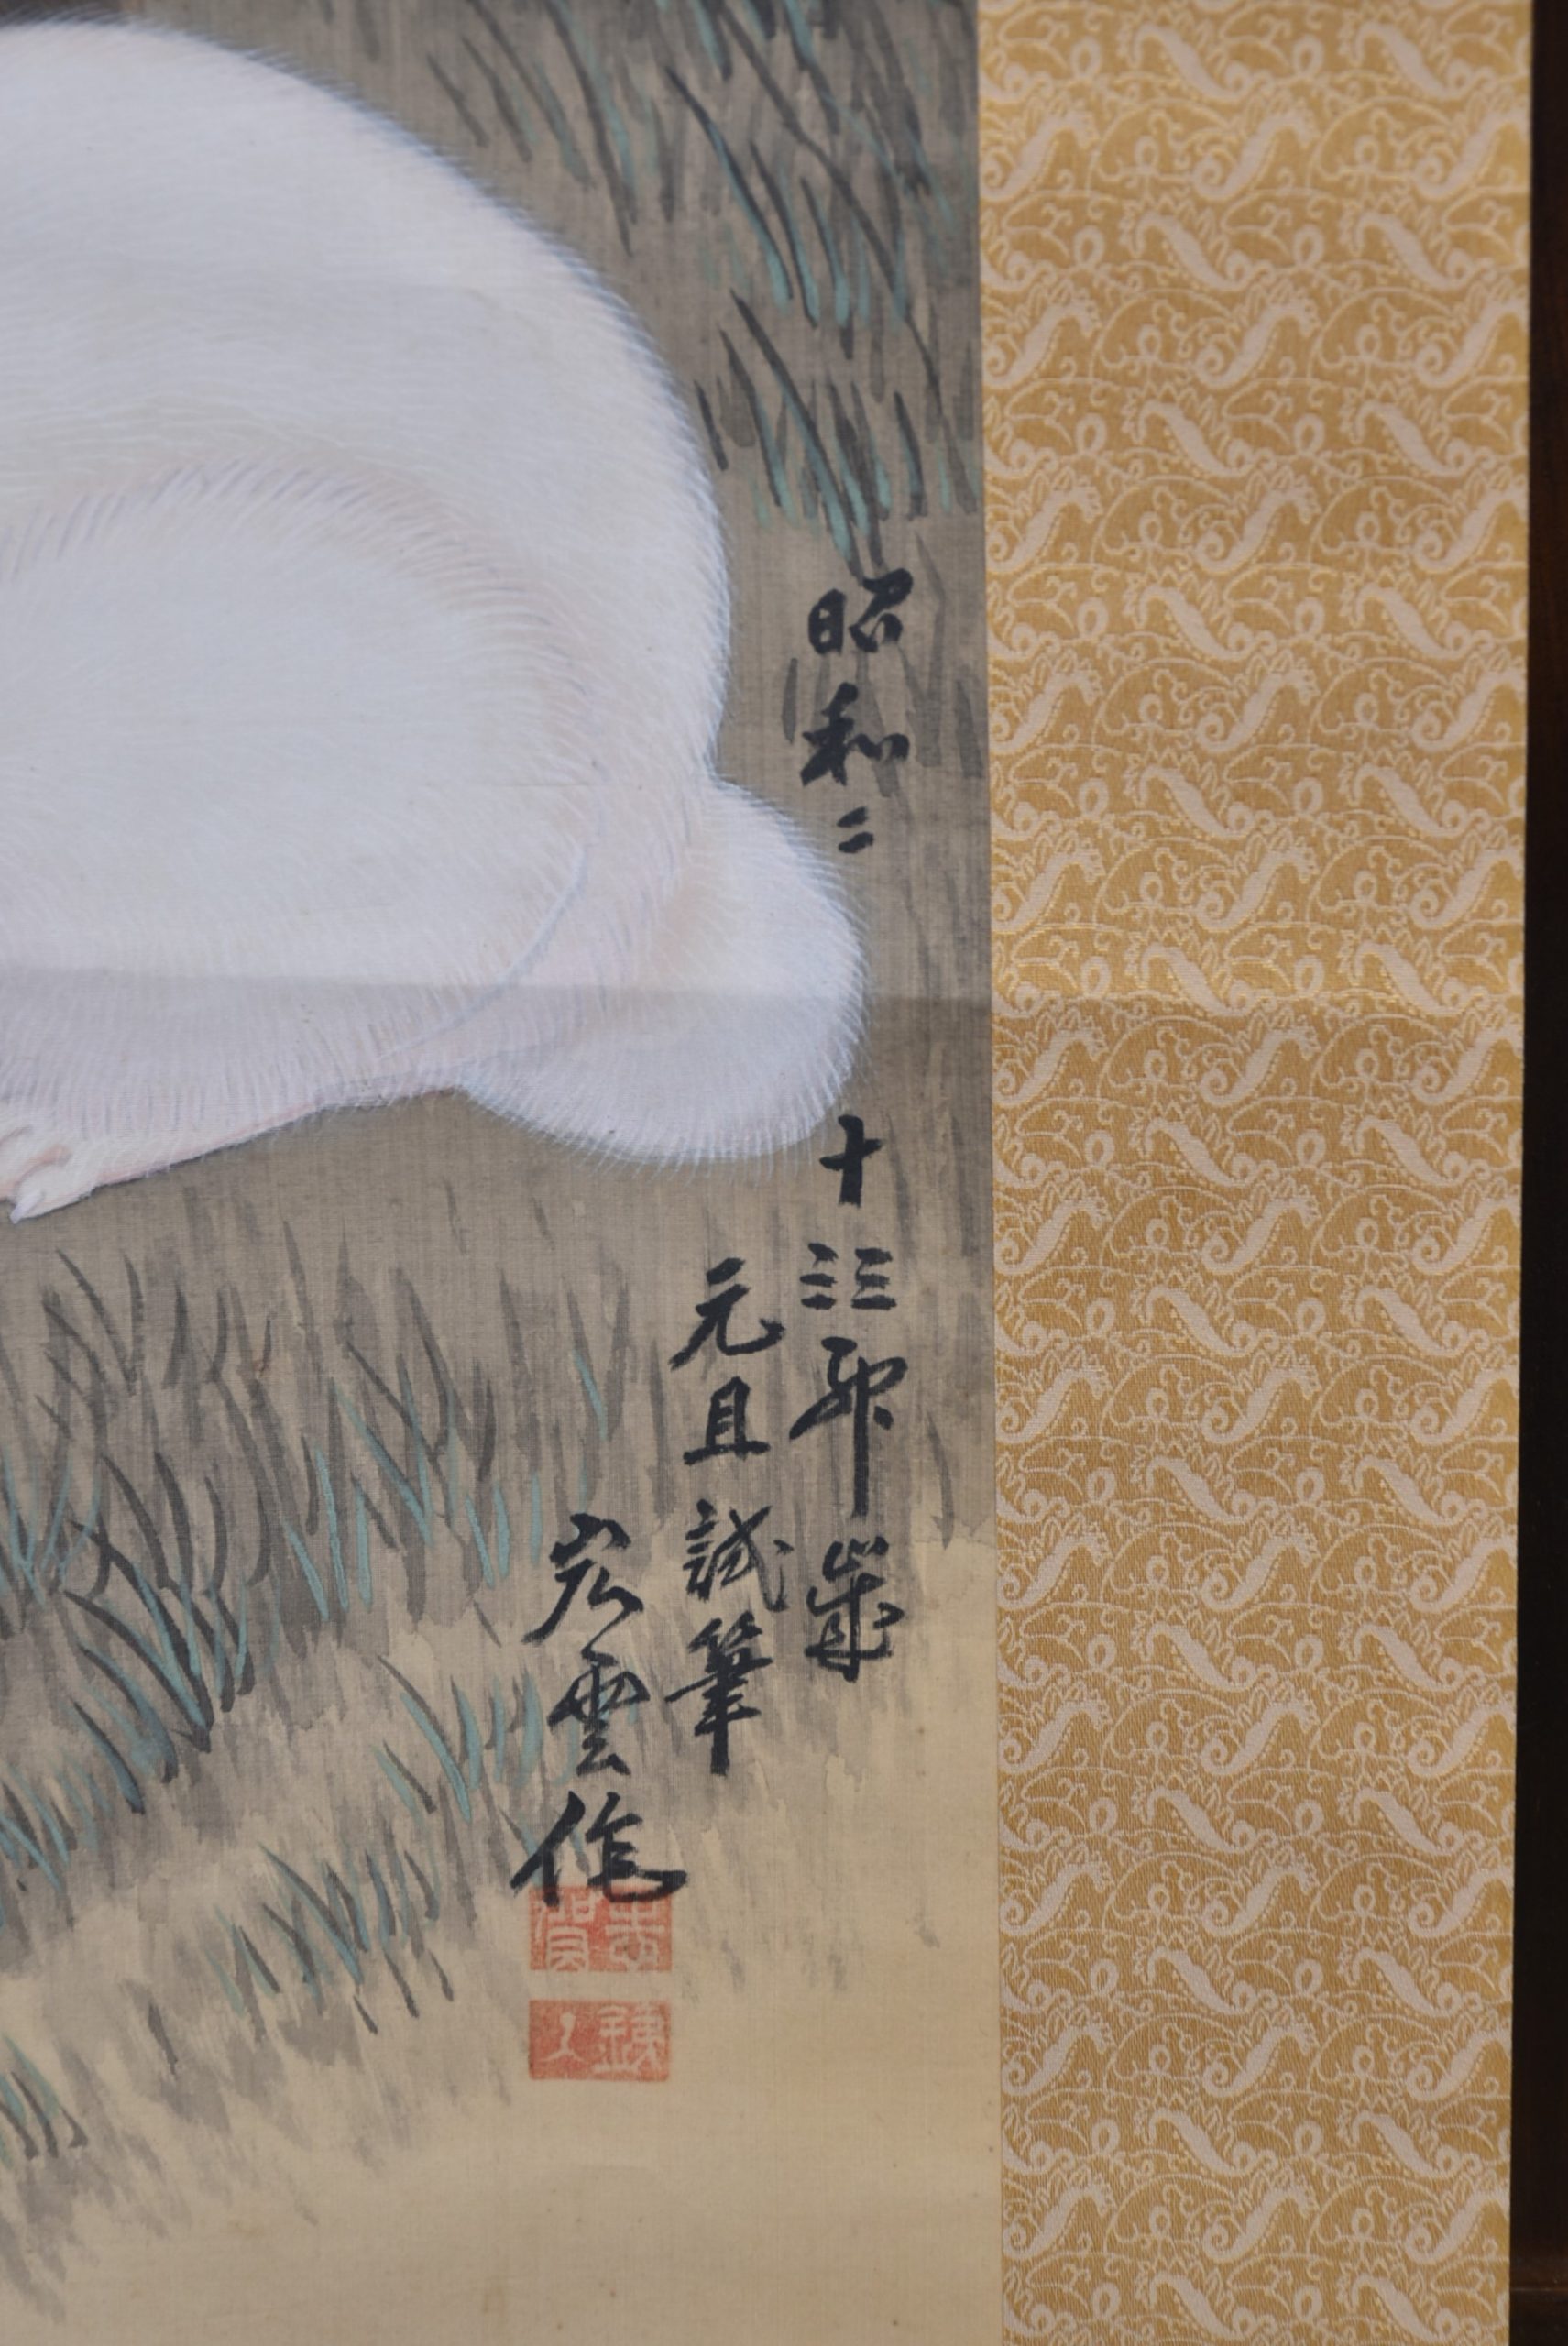 昭和二十三三卯歳
元旦試筆
宏雲作